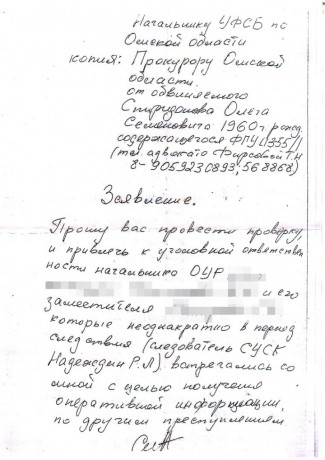 Начальнику УФСБ по
Омской области
копия: Прокурору Омской
области.
от обвиняемого
Спиридонова Олега
Семёновича 1960г. рожд.
содержащегося ФГУ
(тел. адвоката Фирсовой Т.Н
8-9059230893, 568868)
Заявление.
Прошу вас провести проверку,
и привлечь к уголовной ответствен
ности начальника ОУР
и его
заместителя
которые неоднакратно в период
следствия (следователь СУСК
Надеждин Р.Л) встречались со
мной с целью получения
оперативной информации,
по другим преступлениям